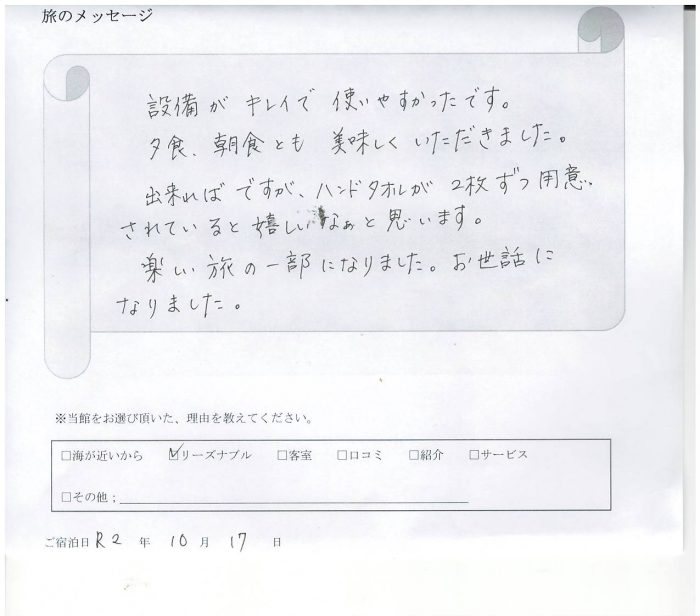 旅のメッセージ
設備がキレイで 使いやすかったです。
夕食、朝食とも 美味しくいただきました。
出来ればですが、ハンドタオルが 2枚ずつ用意
されていると嬉しいなぁと思います。
楽しい旅の一部になりました。お世話に
なりました。
※当館をお選び頂いた、理由を教えてください。
□海が近いから ☑リーズナブル □客室 □口コミ □紹介 □サービス
□その他；
ご宿泊日 R2 年 10 月 17 日